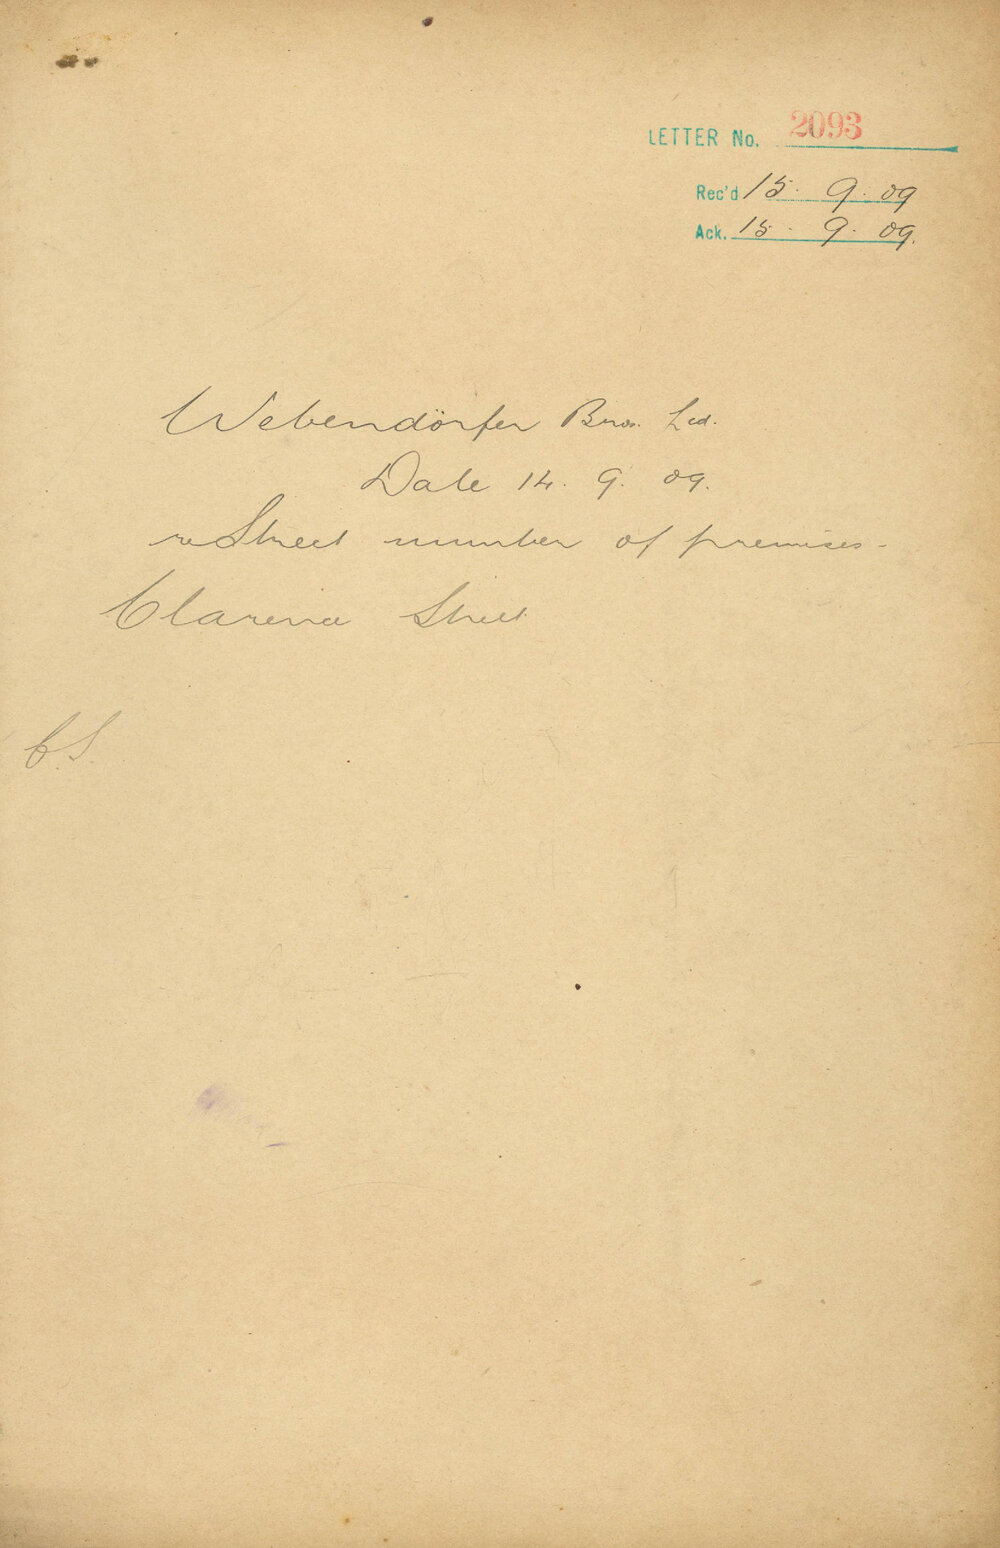 LETTER No. 2093
Rec'd 15. 9. 09
Ack. 15. 9. 09.
Webendörfer Bros. Ltd.
Date 14. 9. 09.
re Street number of premises -
Clarence Street
C.S.